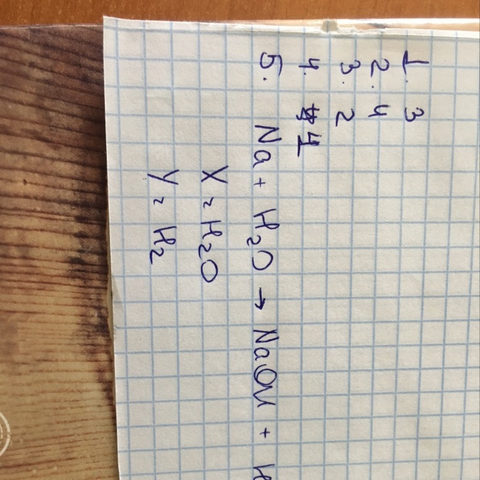 1. 3
2. 4
3. 2
4. 1
5. Na + H₂O → NaOH + H
X = H₂O
Y = H₂